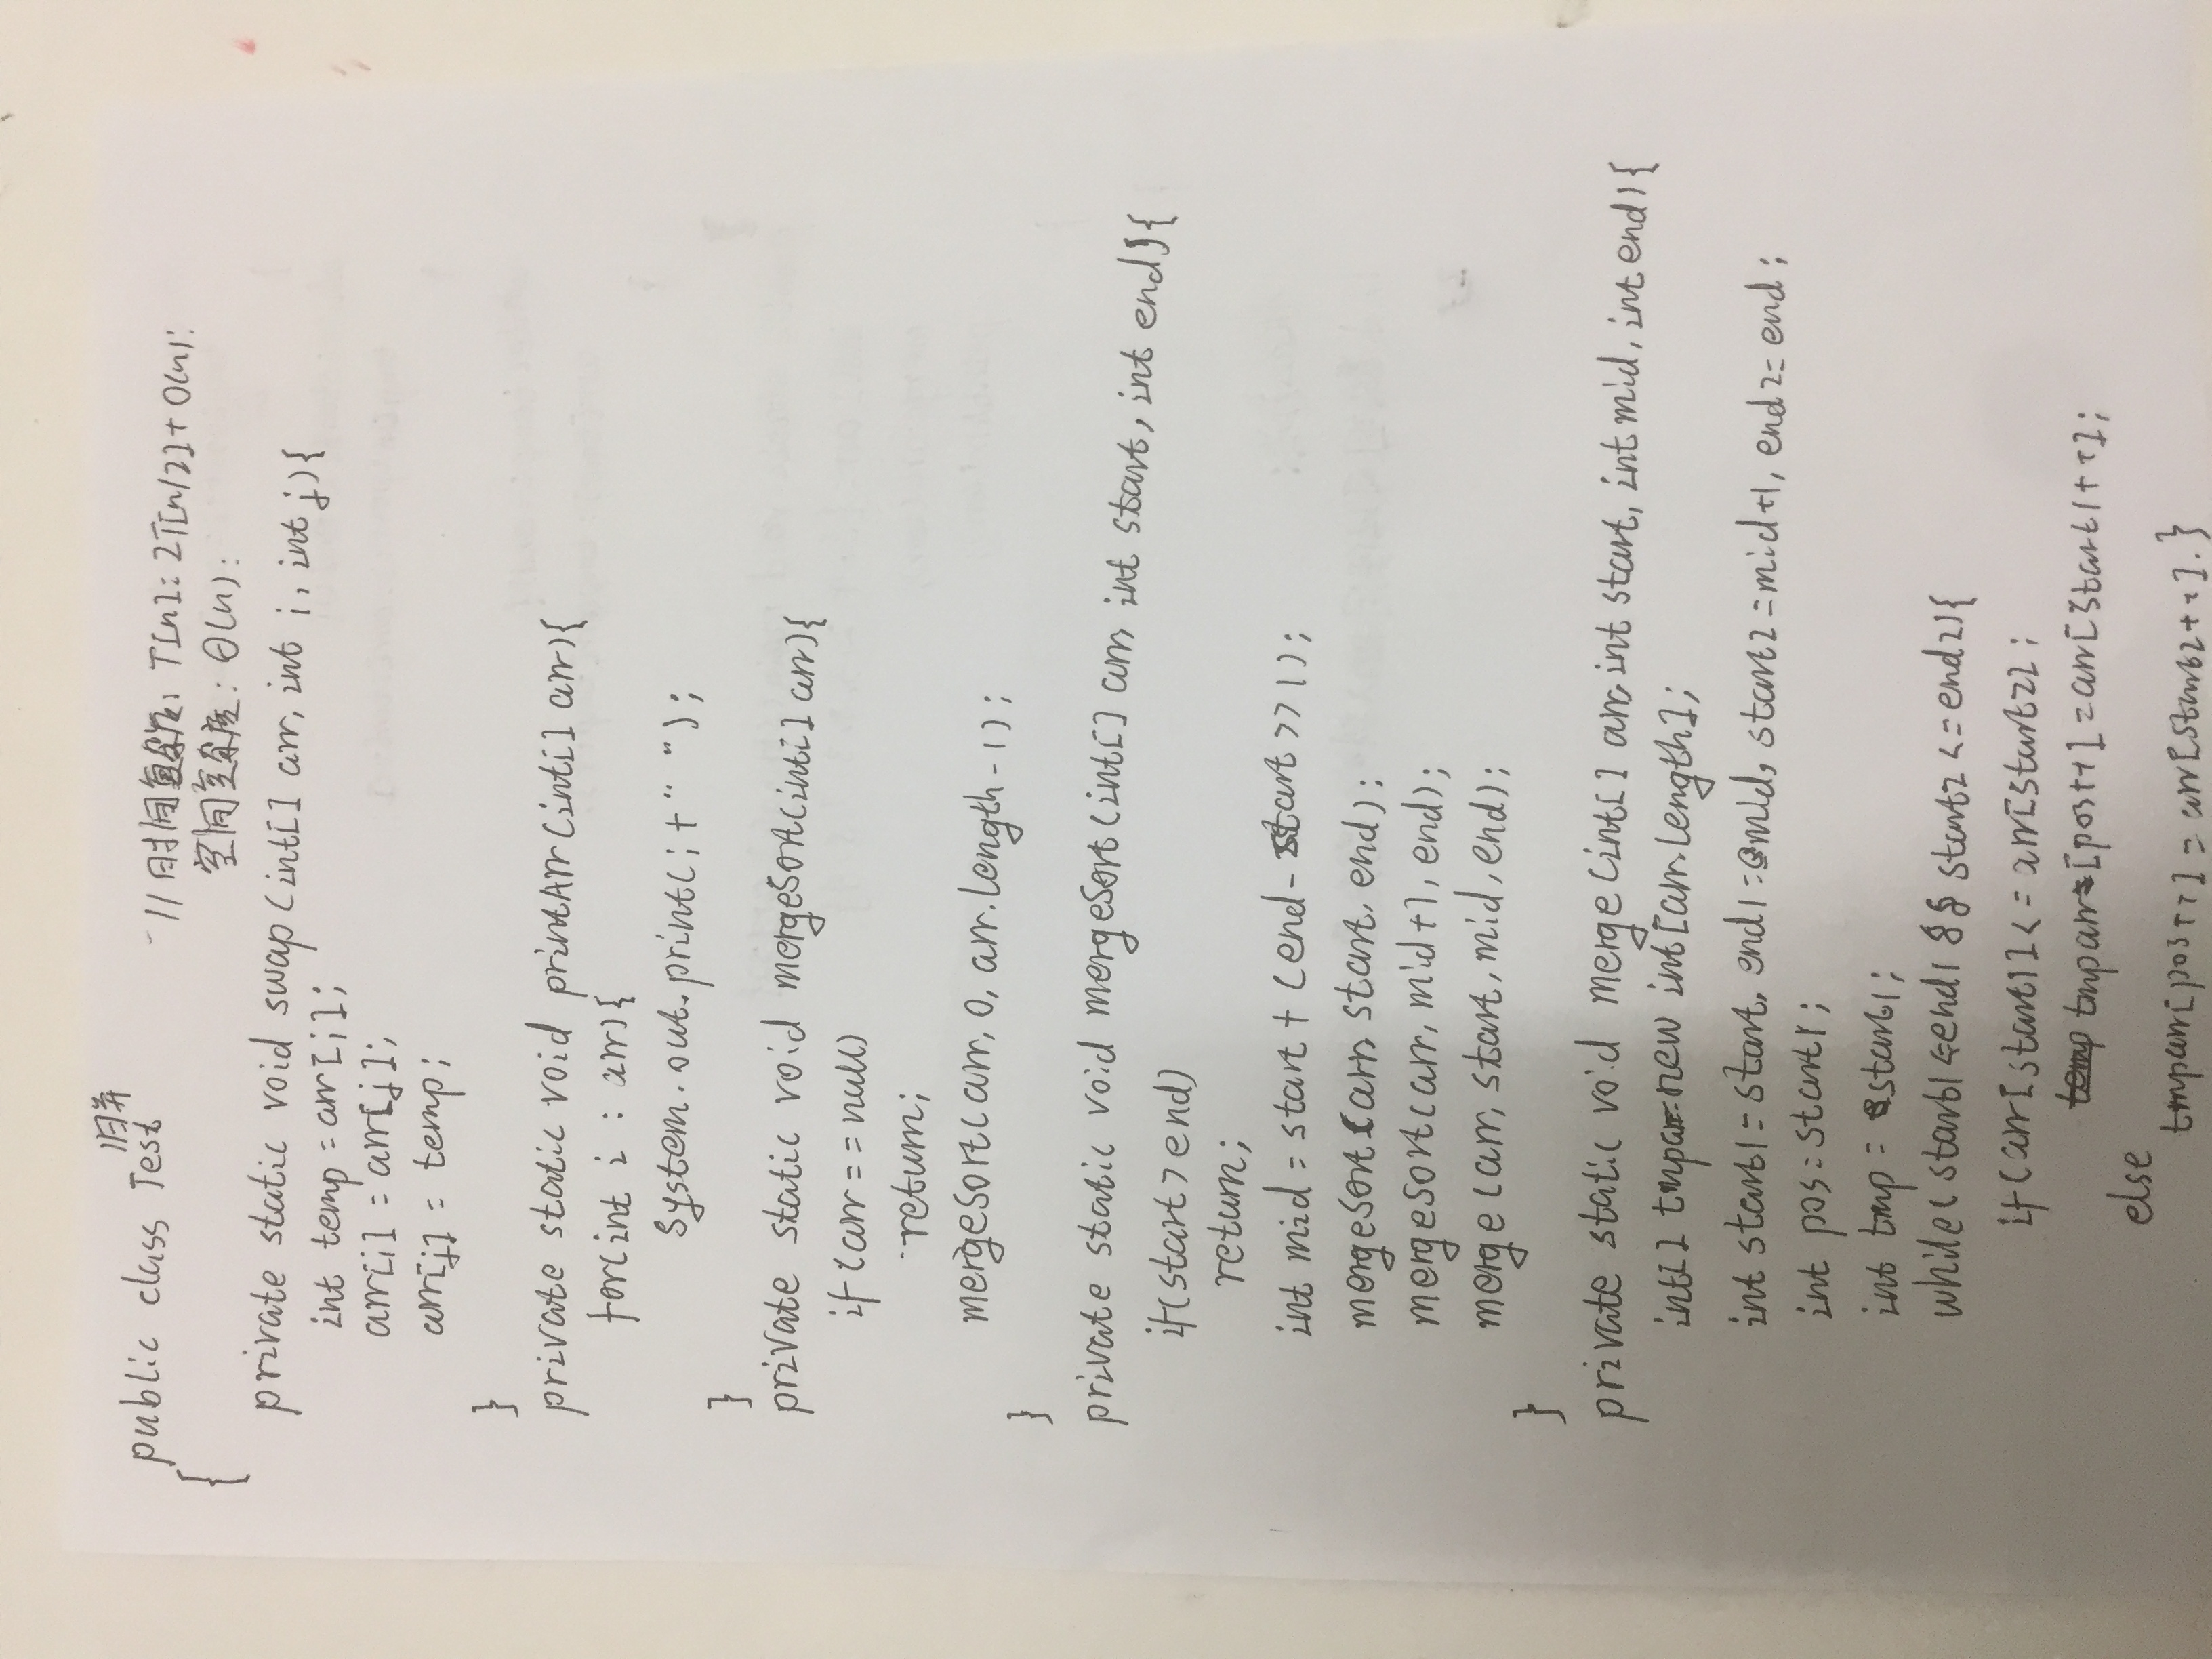 归并
public class Test
//时间复杂度: T[n]: 2T[n/2]+O(n):
空间复杂度: Θ(n):
{
private static void swap(int[] arr, int i, int j){
int temp = arr[i];
arr[i] = arr[j];
arr[j] = temp;
}
private static void printArr(int[] arr){
for(int i : arr){
System.out.print(i+" ");
}
private static void mergeSort(int[] arr){
if(arr==null)
return;
mergeSort(arr, 0, arr.length-1);
}
private static void mergeSort(int[] arr, int start, int end){
if(start>end)
return;
int mid = start + (end-start>>1);
mergeSort(arr, start, end);
mergeSort(arr, mid+1, end);
merge(arr, start, mid, end);
}
private static void merge(int[] arr, int start, int mid, int end){
int[] tmparr=new int[arr.length];
int start1=start, end1=mid, start2=mid+1, end2=end;
int pos=start1;
int tmp = start1;
while(start1<=end1 && start2<=end2){
if(arr[start1]<=arr[start2];
tmparr[pos++]=arr[start1++];
else
tmparr[pos++]=arr[start2++].}